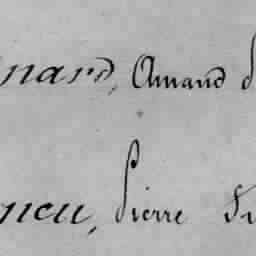 nard, Amand
neu, Pierre